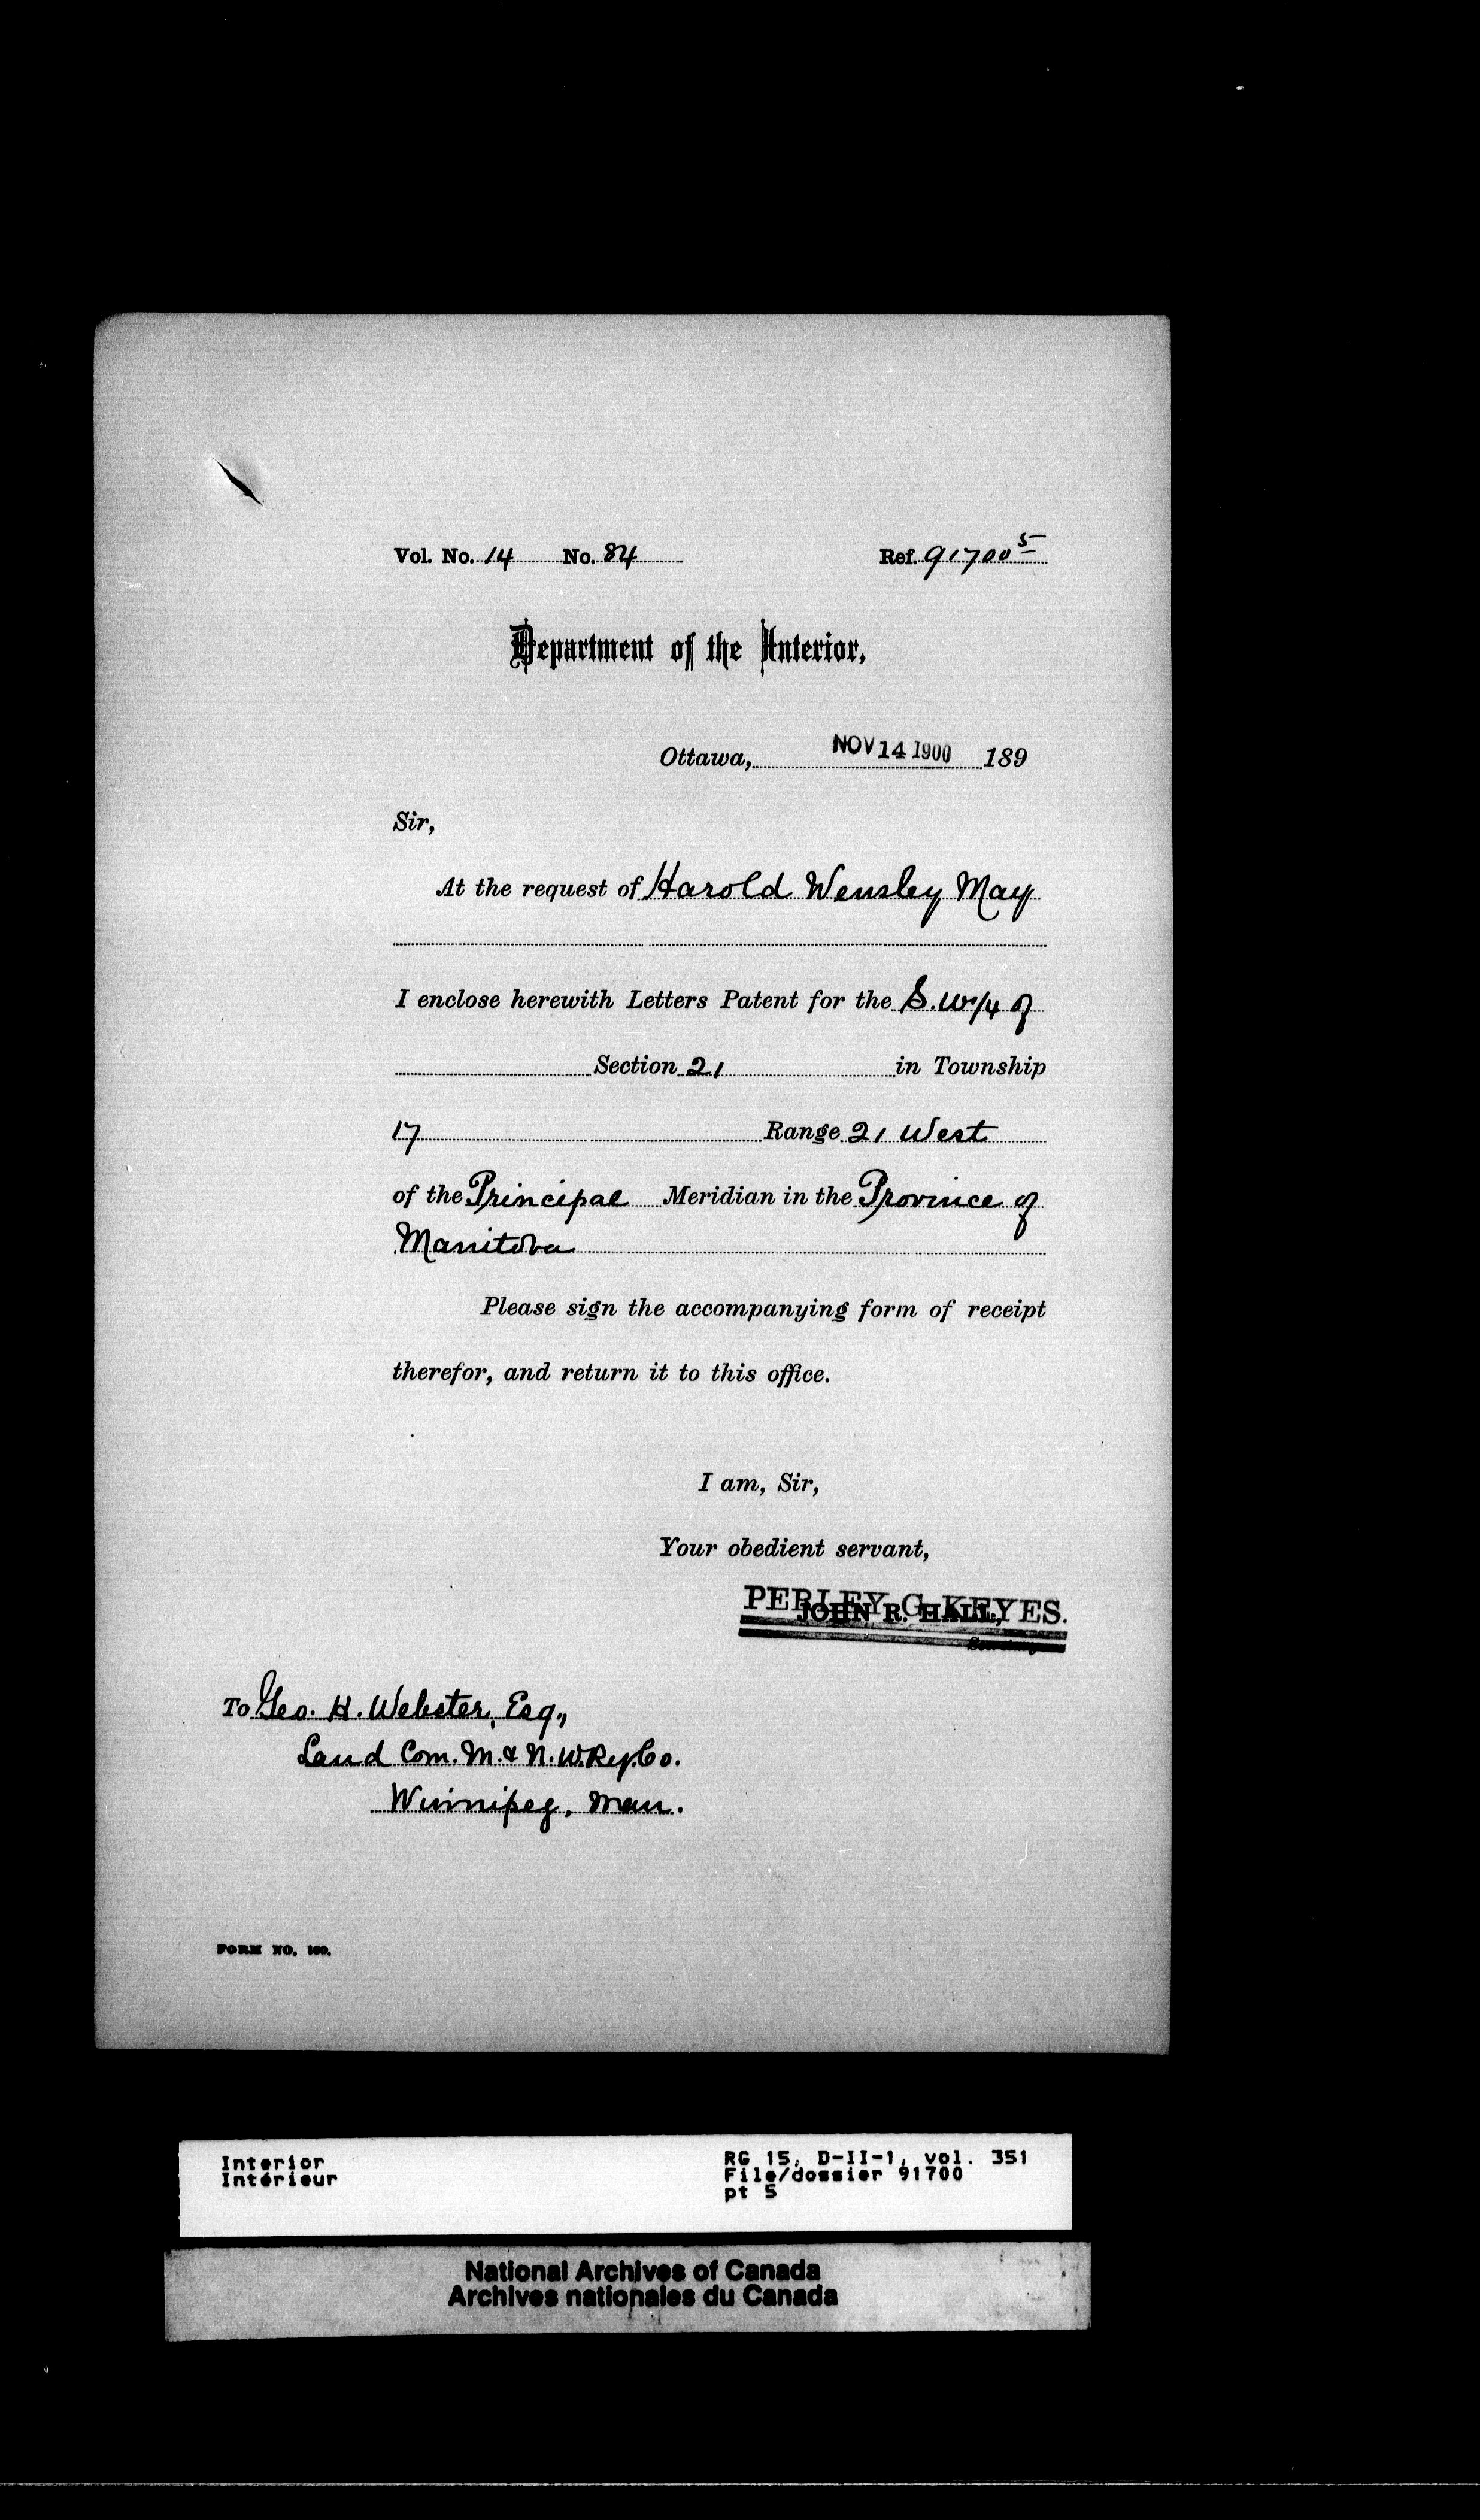 Vol. No. 14 No. 84 Ref. 91700 5
Department of the Interior,
Ottawa, NOV 14 1900 189
Sir,
At the request of Harold Wensley May
I enclose herewith Letters Patent for the S.W.1/4 of
Section 21 in Township
17 Range 21 West
of the Principal Meridian in the Province of
Manitoba
Please sign the accompanying form of receipt
therefor, and return it to this office.
I am, Sir,
Your obedient servant,
PERLEY G. KEYES.
JOHN R. HALL,
To Geo. H. Webster, Esq.,
Land Com. M. & N. W. Ry. Co.
Winnipeg, Man.
FORM NO. 160.
Interior
Intérieur
RG 15, D-II-1, vol. 351
File/dossier 91700
pt 5
National Archives of Canada
Archives nationales du Canada